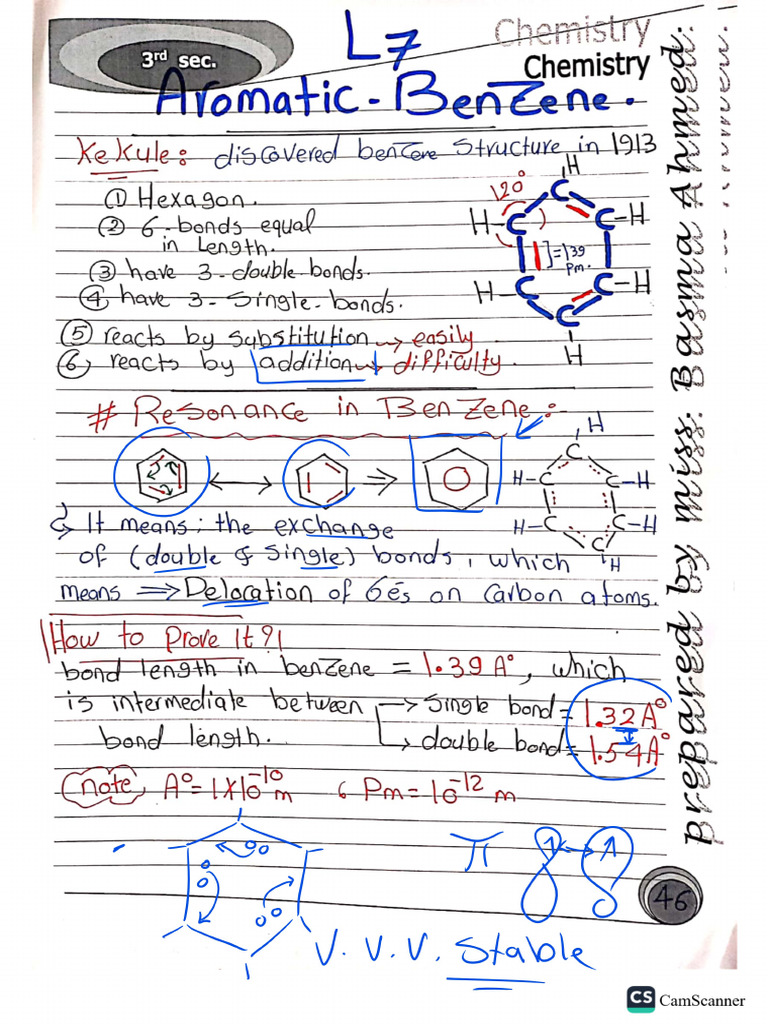 L7
Chemistry
3rd sec.
Chemistry
Aromatic - BenZene.
KeKule: discovered benzene structure in 1913
① Hexagon.
② 6-bonds equal
in Length.
③ have 3-double bonds.
④ have 3-Single-bonds.
⑤ reacts by substitution → easily
⑥ reacts by addition → difficulty.
H
120°
C
H-C
C-H
]=139
Pm.
H-C
C-H
C
H
# Resonance in BenZene:-
H
C
H-C
C-H
H-C
C-H
C
H
It means: the exchange
of (double & Single) bonds, which
means ⇒ Delocation of 6és on Carbon atoms.
How to Prove It?!
bond length in benzene = 1.39 A°, which
is intermediate between → single bond = 1.32A°
bond length. → double bond = 1.54A°
note A° = 1X10⁻¹⁰ m 6 Pm = 10⁻¹² m
π
V. V. V. Stable
46
prepared by miss: Basma Ahmed.
CS CamScanner